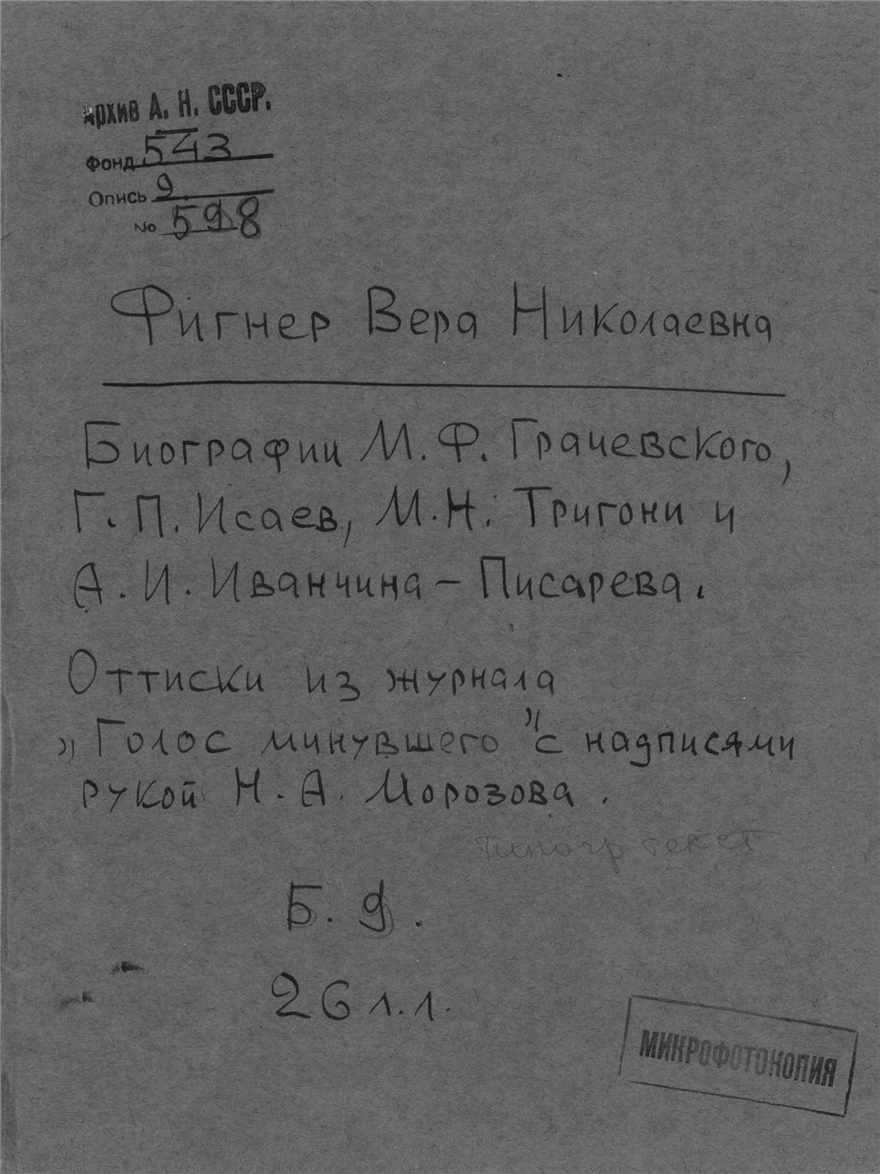 Архив А. Н. СССР.
Фонд 543
Опись 9
№ 598
Фигнер Вера Николаевна
Биографии М.Ф. Грачевского,
Г.П. Исаев, М.Н. Тригони и
А.И. Иванчина – Писарева.
Оттиски из журнала
„Голос минувшего" с надписями
рукой Н.А. Морозова.
типогр текст
Б. д.
26 л.л.
МИКРОФОТОКОПИЯ